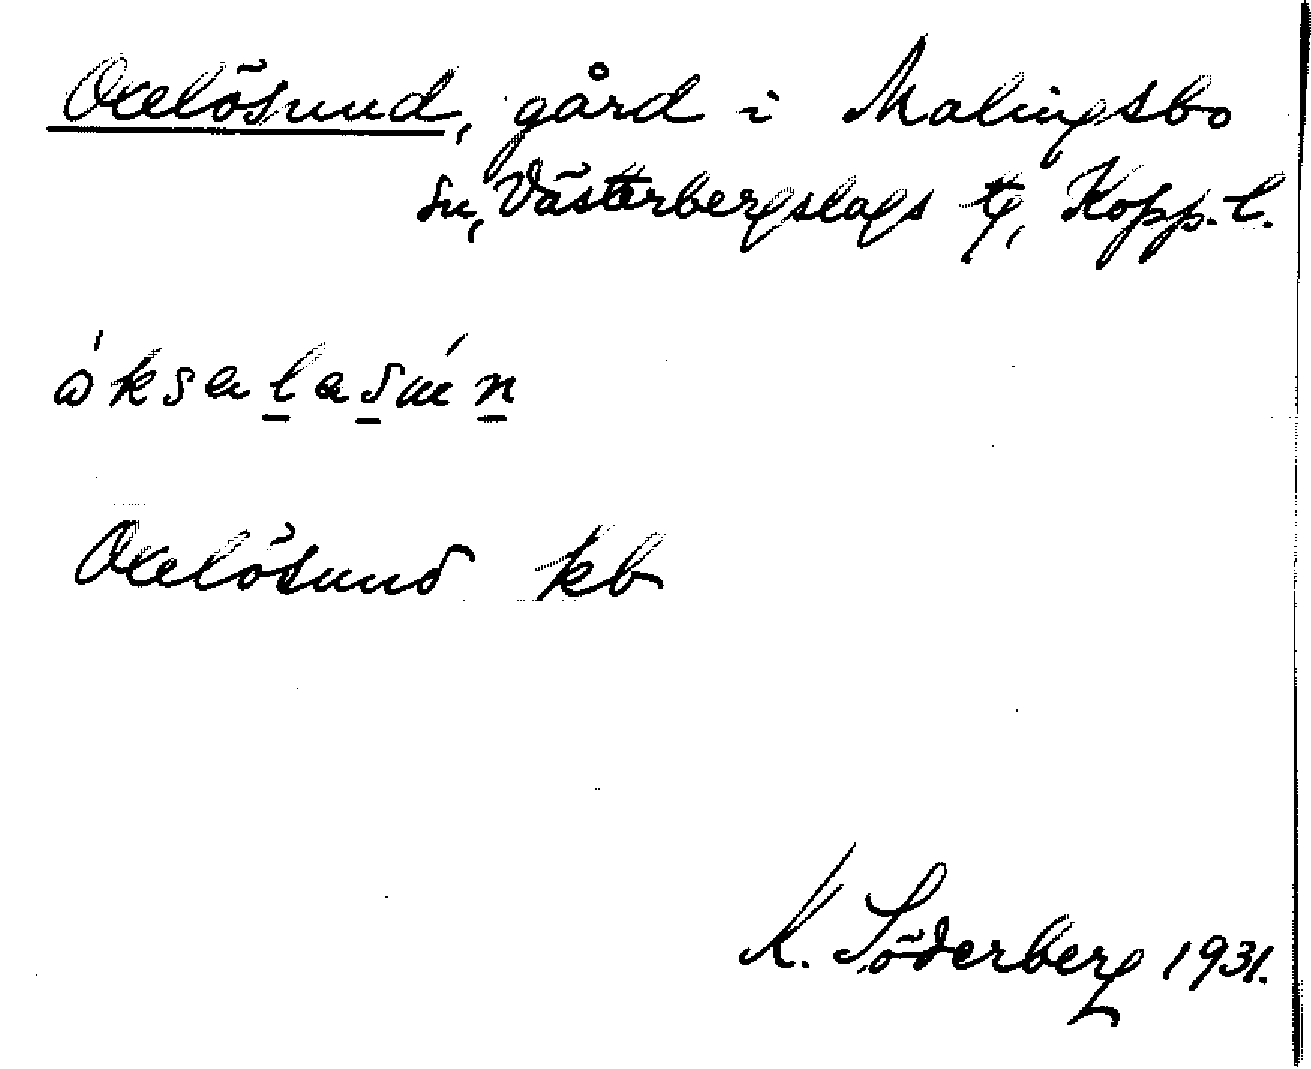 Oxelösund, gård i Malingsbo
sn, Västerbergslags tg, Kopp. l.
Oxelösund kb
K. Söderberg 1931.